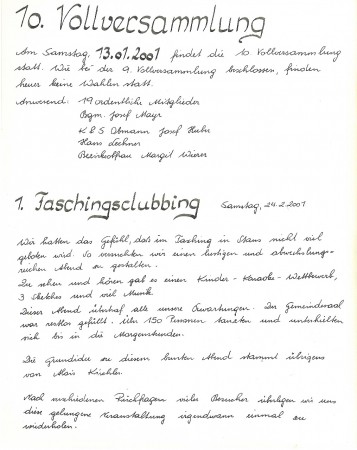 10. Vollversammlung
Am Samstag, 13.01.2001 findet die 10. Vollversammlung
statt. Wie bei der 9. Vollversammlung beschlossen, finden
heuer keine Wahlen statt.
Anwesend: 19 ordentliche Mitglieder
Bgm. Josef Mayr
K & S Obmann Josef Huber
Hans Lechner
Bezirksfrau Margit Wierer
1. Faschingsclubbing Samstag, 24.2.2001
Wir hatten das Gefühl, dass im Fasching in Stans nicht viel
geboten wird. So versuchten wir einen lustigen und abwechslungs-
reichen Abend zu gestalten.
Zu sehen und hören gab es einen Kinder-Karaoke-Wettbewerb,
3 Sketches und viel Musik.
Dieser Abend übertraf alle unsere Erwartungen. Der Gemeindesaal
war restlos gefüllt. 150 Personen tanzten und unterhielten
sich bis in die Morgenstunden.
Die Grundidee zu diesem bunten Abend stammt übrigens
von
Nach verschiedenen Rückfragen vieler Besucher überlegen wir uns
diese gelungene Veranstaltung irgendwann einmal zu
wiederholen.